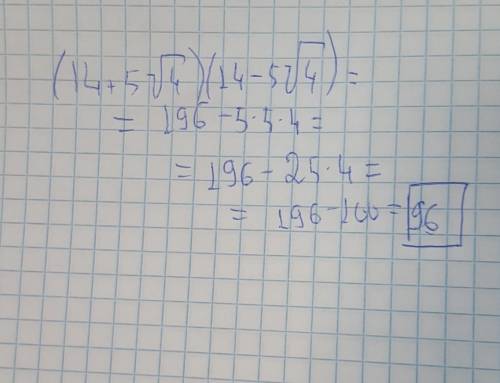 (14+5√4)(14-5√4)=
= 196-5·5·4=
= 196-25·4=
= 196-100=96